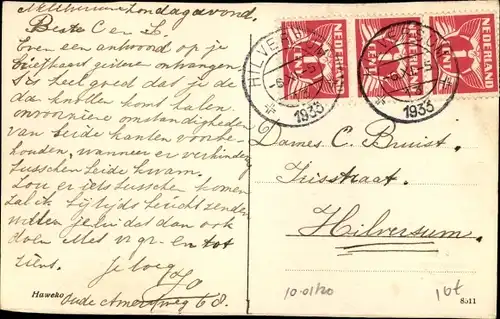 Zondagavond.
Beste C en L.
Even een antwoord op je
briefkaart gisteren ontvangen.
't Is heel goed dat je de
da knollen komt halen
onvoorziene omstandigheden
van beide kanten voorbe-
houden, wanneer er verhindering
tusschen beide kwam.
Zou er iets tusschen komen
zal ik bijtijds bericht zenden
willen jelui dat dan ook
doen Met vr gr. en tot
ziens.
Je toeg
Jo
Oude Amersfweg 68.
Huweko
NEDERLAND
1
CENT
NEDERLAND
1
CENT
NEDERLAND
1
CENT
HILVERSUM
1933
HILVERSUM
1933
Dames C. Bruist.
Irisstraat.
Hilversum.
10-01/20
8511